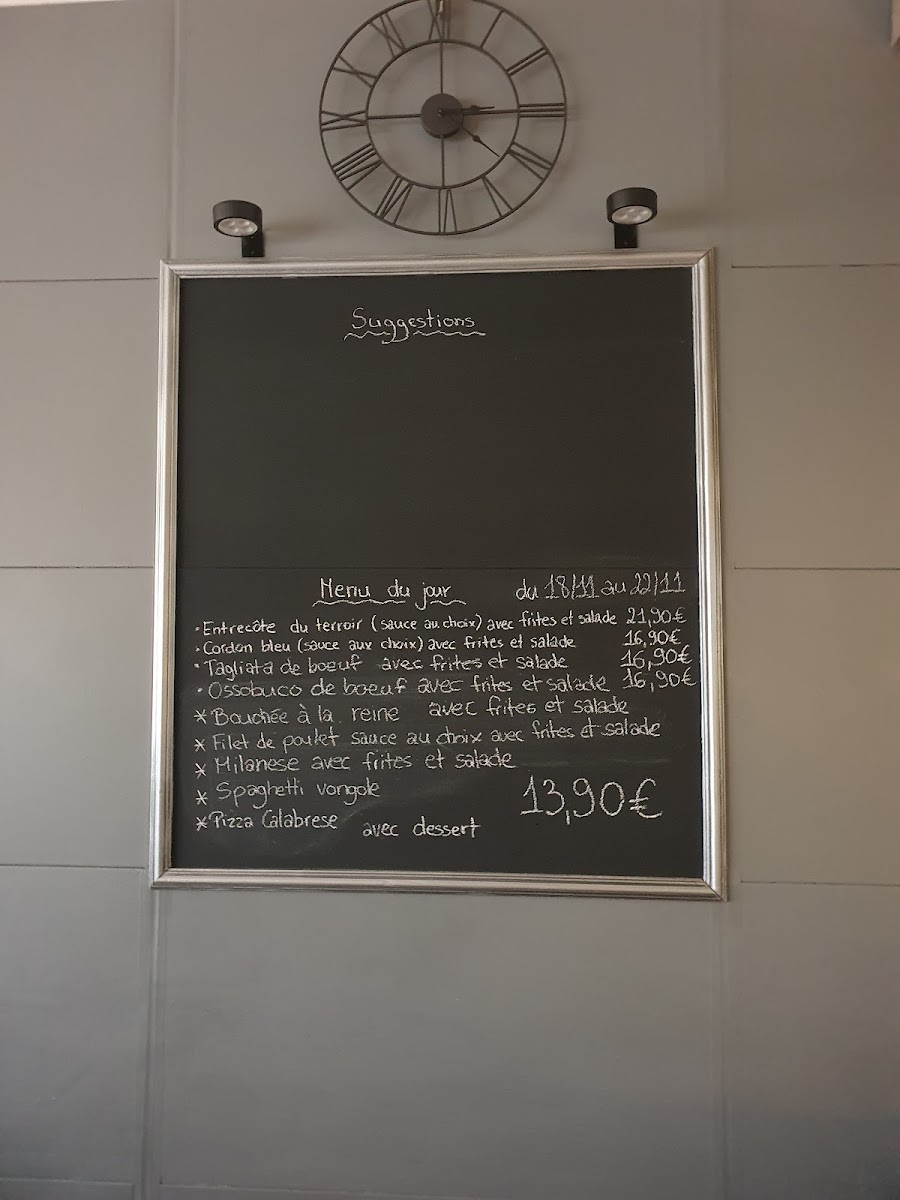 Suggestions
Menu du jour du 18/11 au 22/11
• Entrecôte du terroir (sauce au choix) avec frites et salade 21,90€
• Cordon bleu (sauce aux choix) avec frites et salade 16,90€
• Tagliata de boeuf avec frites et salade 16,90€
• Ossobuco de boeuf avec frites et salade 16,90€
* Bouchée à la reine avec frites et salade
* Filet de poulet sauce au choix avec frites et salade
* Milanese avec frites et salade
* Spaghetti vongole
* Pizza Calabrese avec dessert 13,90€